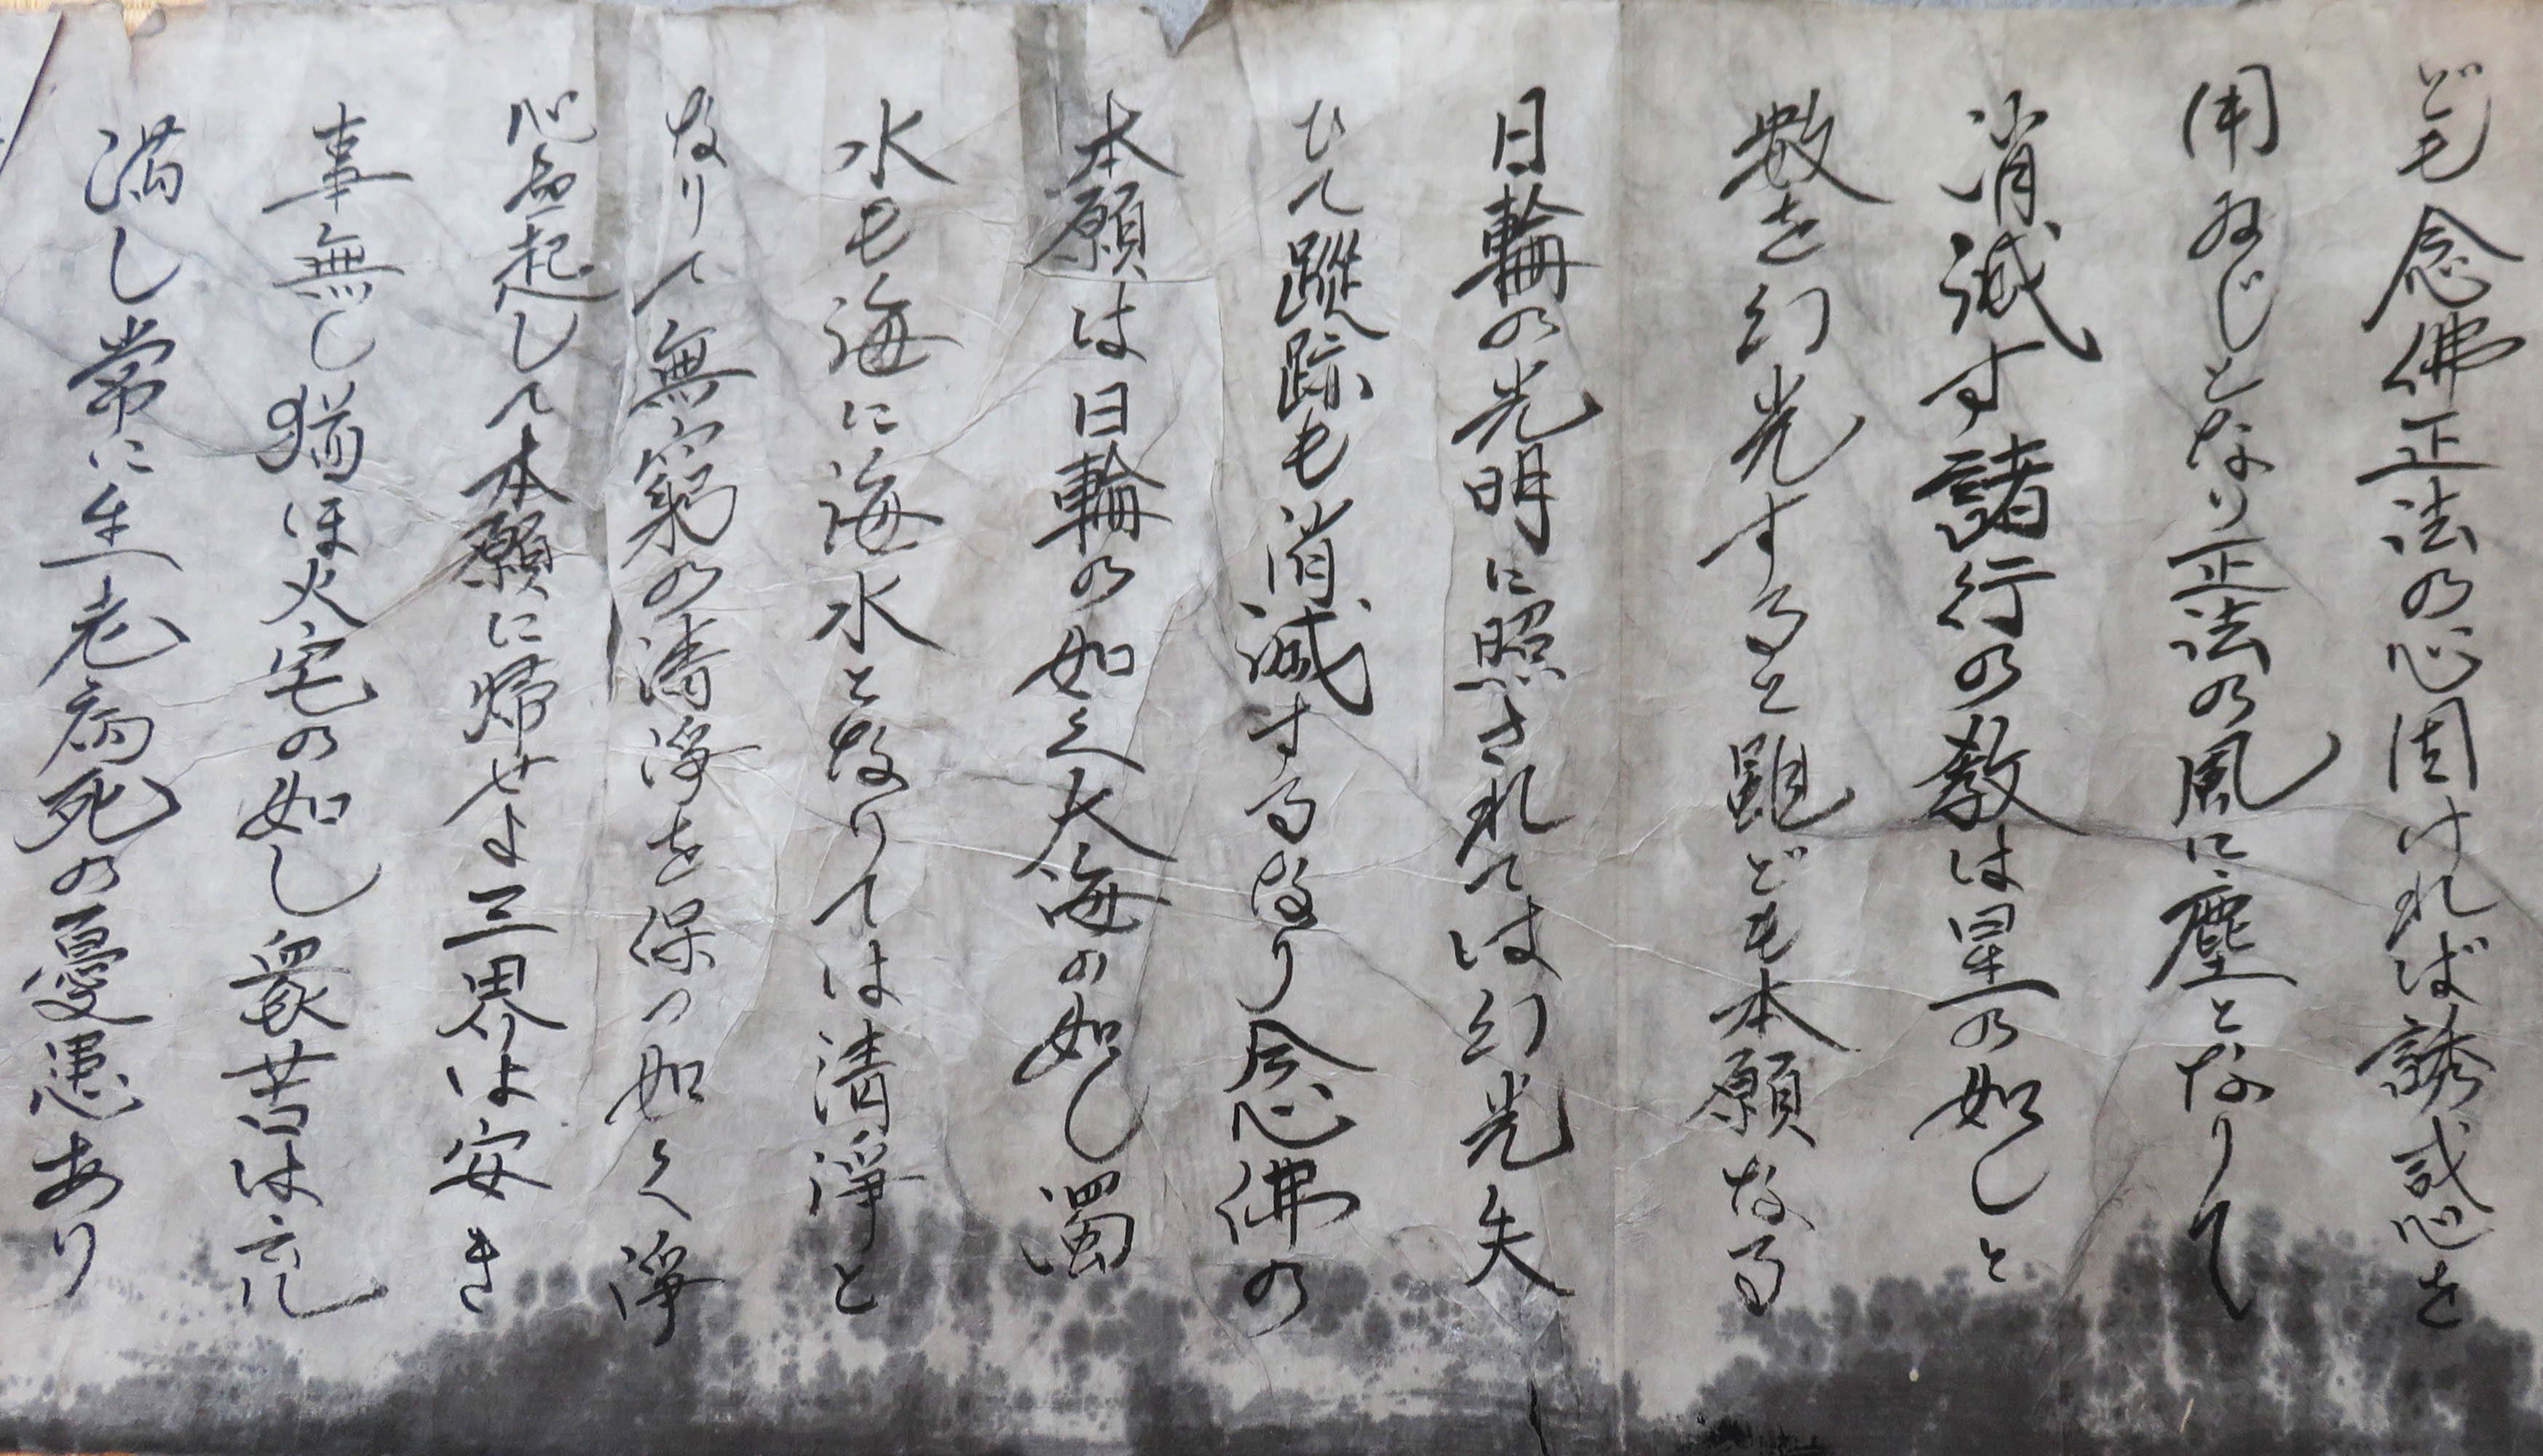 ども念佛正法の心固ければ誘惑心を
用ゐじとなり正法の風に塵となりて
消滅す諸行の教は星の如しと
数を幻光すると雖ども本願なる
日輪の光明に照されては幻光失
ひて蹤跡も消滅するなり念佛の
本願は日輪の如く大海の如し濁
水も海に海水と なりては清淨と
なりて無窮の清淨を保つ如く淨
心を起して本願に帰せよ三界は安き
事無し猶ほ火宅の如し衆苦は充
満し常に生老病死の憂患あり